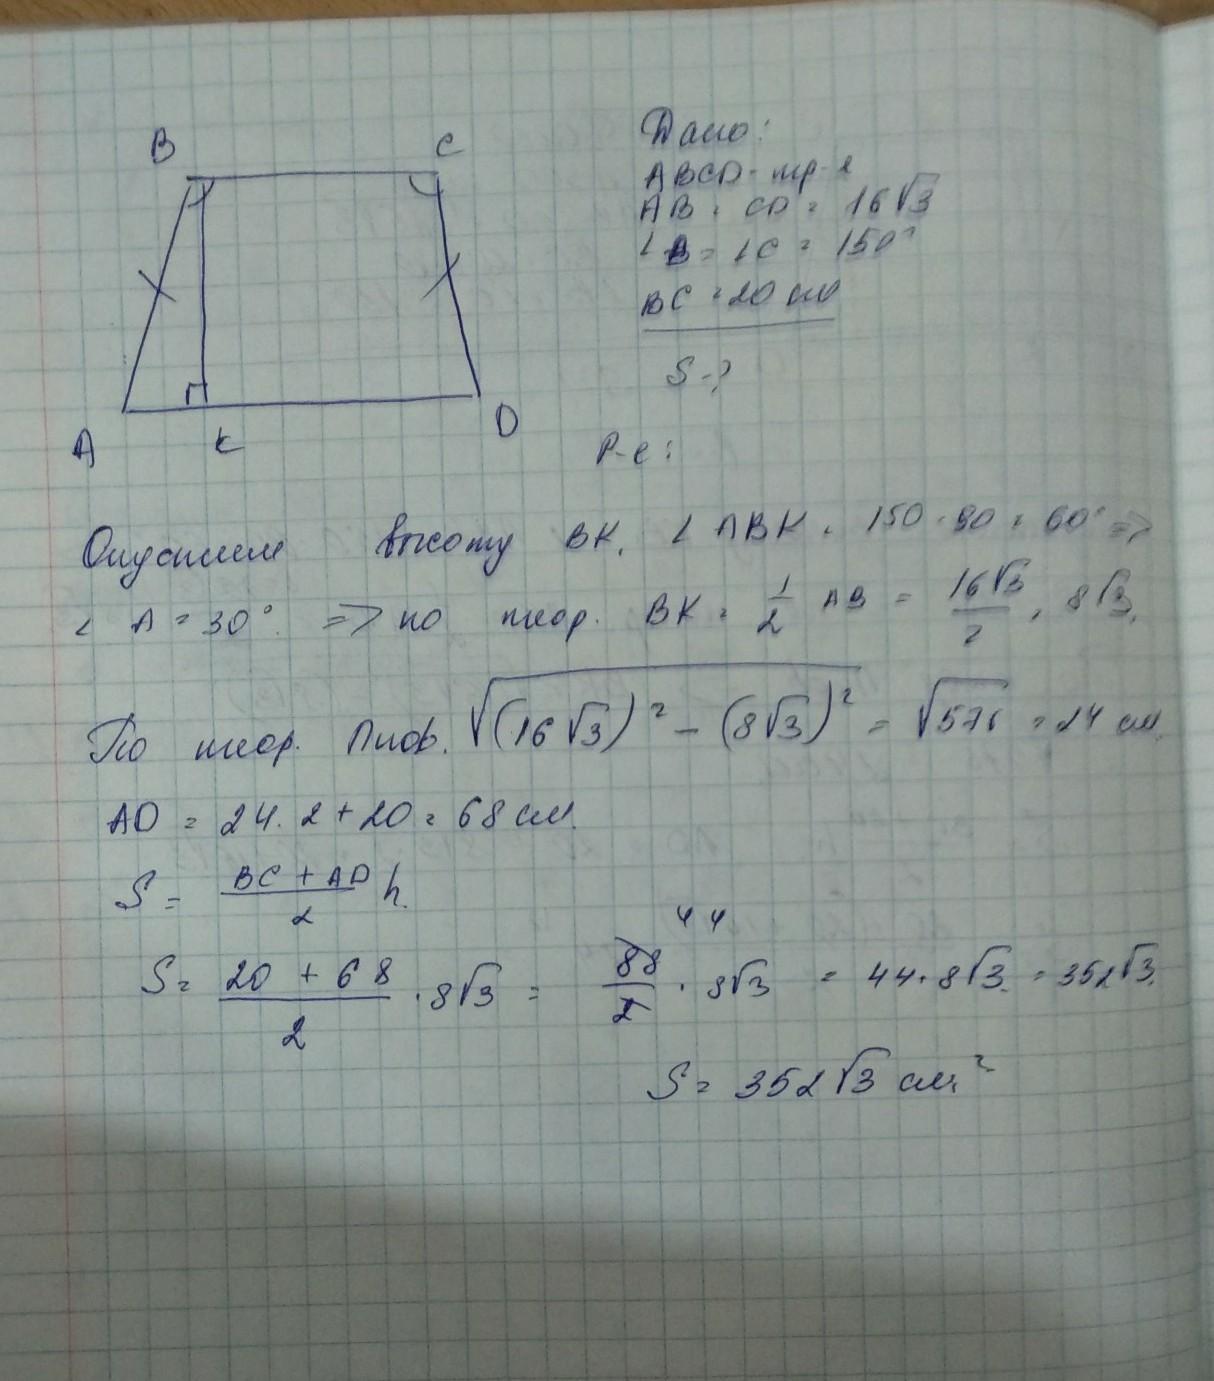 B C
A K D
Дано:
ABCD - тр-я
AB = CD = 16√3
∠B = ∠C = 150°
BC = 20 см
S - ?
Р-е:
Опустим высоту BK. ∠ABK = 150 - 90 = 60° =>
∠A = 30° => по теор. BK = 1/2 AB = 16√3/2 = 8√3.
По теор. Пиф. √((16√3)² - (8√3)²) = √576 = 24 см.
AD = 24 · 2 + 20 = 68 см.
S = (BC + AD)/2 h.
S = (20 + 68)/2 · 8√3 = 88/2 · 8√3 = 44 · 8√3 = 352√3.
44
S = 352√3 см²